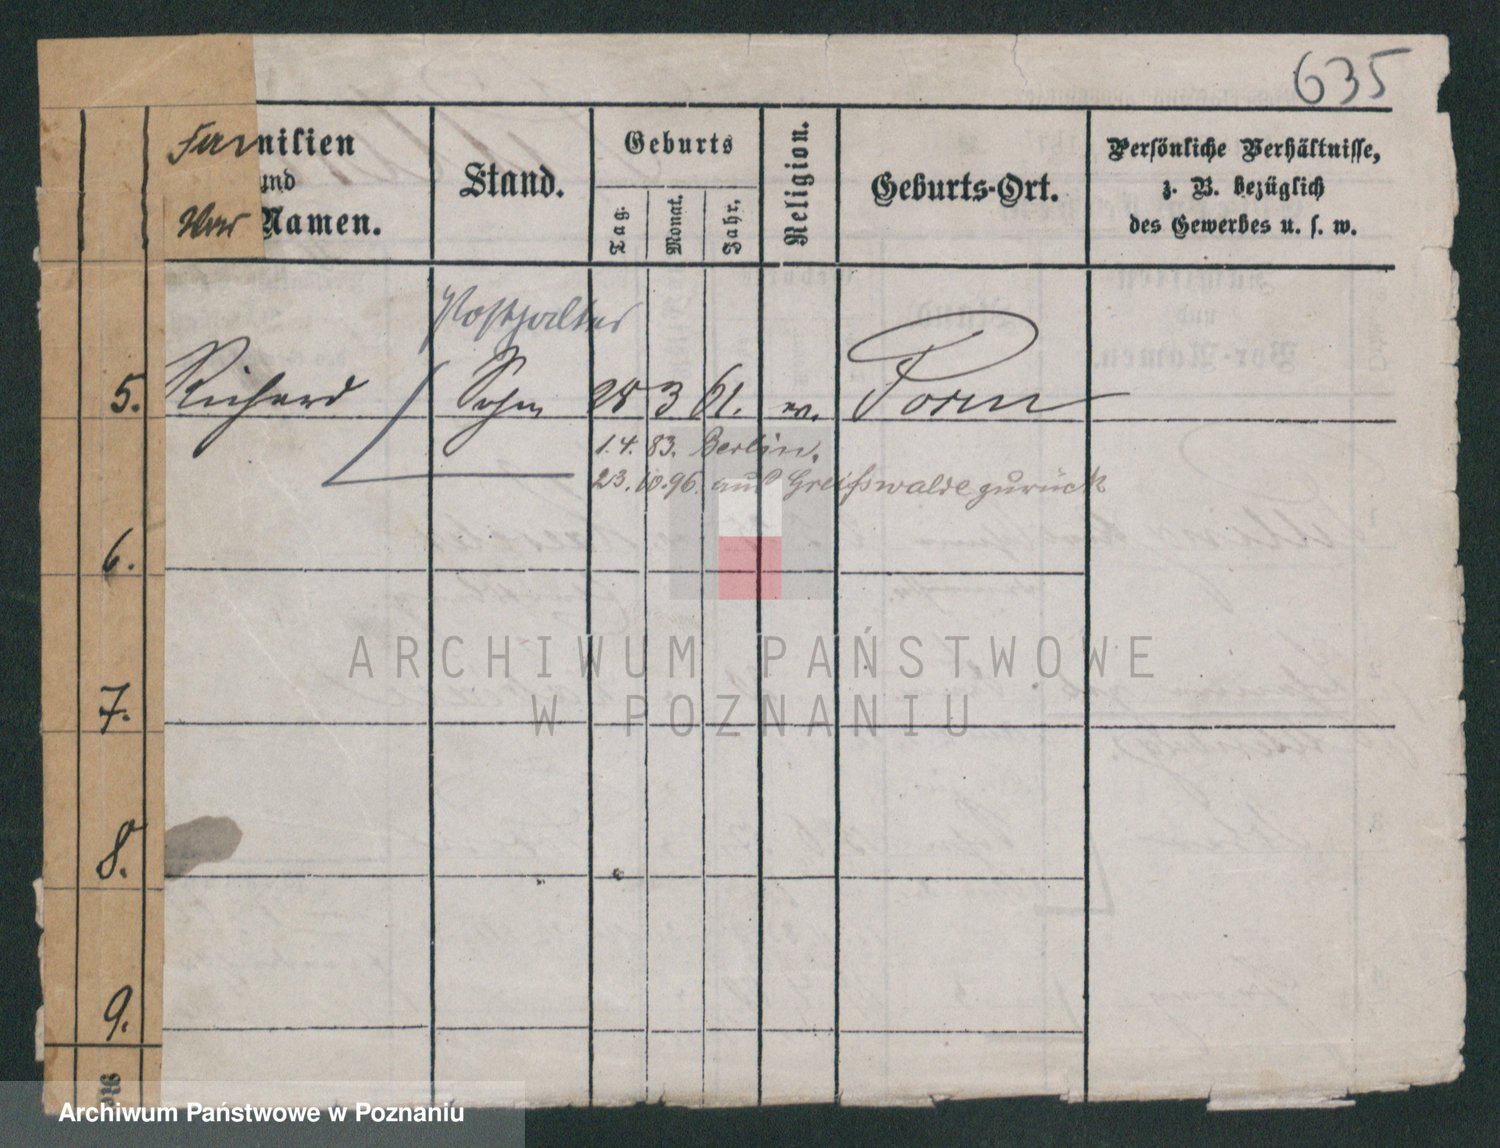 635
Familien
und
Vor Namen.
Stand.
Geburts
Tag.
Monat.
Jahr.
Religion.
Geburts-Ort.
Persönliche Verhältnisse,
z. B. bezüglich
des Gewerbes u. s. w.
Posthalter
5. Richard Sohn 28 3 61. ev. Posen
1.4.83. Berlin.
23.10.96. aus Greifswalde zurück
6.
7.
8.
9.
ARCHIWUM PAŃSTWOWE
W POZNANIU
Archiwum Państwowe w Poznaniu